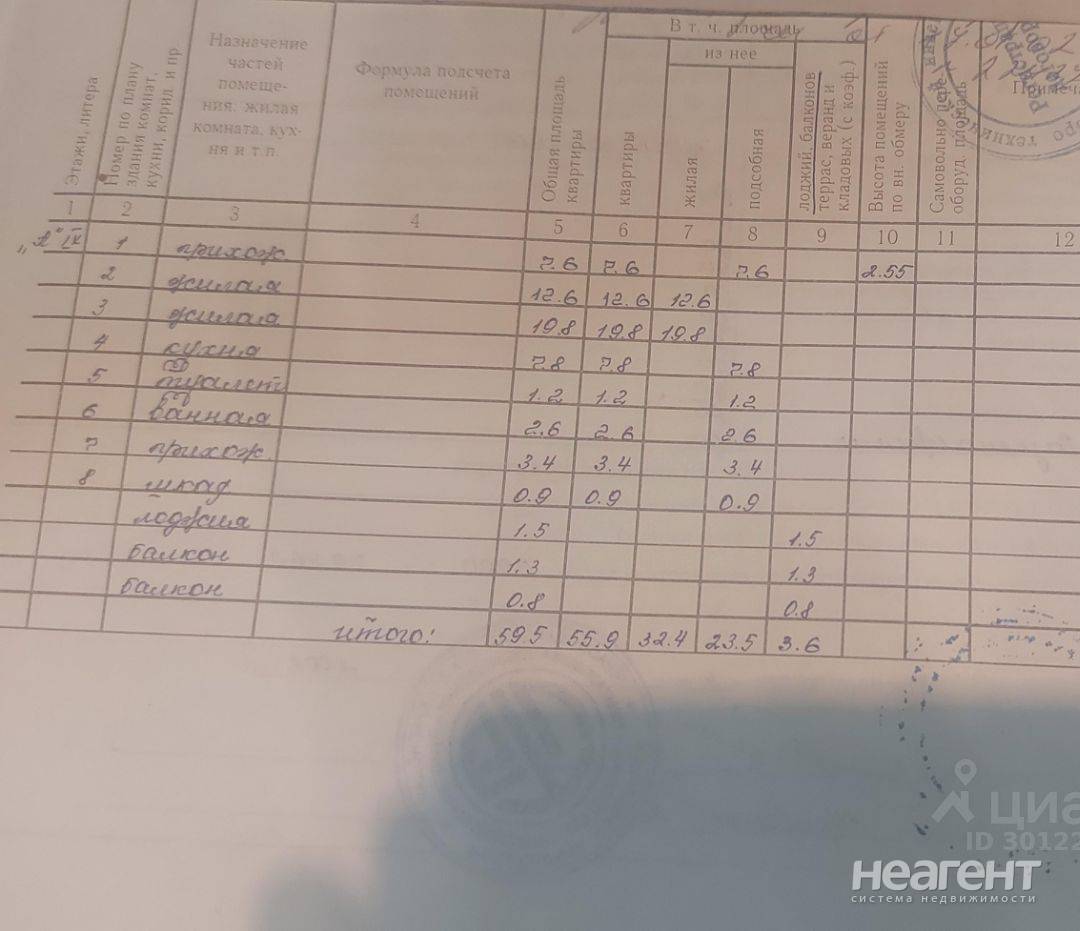 Этажи, литера
Номер по плану здания комнат, кухни, корид. и пр.
Назначение
частей
помеще-
ния: жилая
комната, кух-
ня и т.п.
Формула подсчета
помещений
Общая площадь квартиры
В т. ч. площадь
из нее
квартиры
жилая
подсобная
лоджий, балконов террас, веранд и кладовых (с коэф.)
Высота помещений по вн. обмеру
Самовольно пере- оборуд. площадь
Примеча
1 2 3 4 5 6 7 8 9 10 11 12
„А" IX 1 прихож 7.6 7.6 7.6 2.55
2 жилая 12.6 12.6 12.6
3 жилая 19.8 19.8 19.8
4 кухня 7.8 7.8 7.8
5 туалет 1.2 1.2 1.2
6 ванная 2.6 2.6 2.6
7 прихож 3.4 3.4 3.4
8 шкаф 0.9 0.9 0.9
лоджия 1.5 1.5
балкон 1.3 1.3
балкон 0.8 0.8
итого: 59.5 55.9 32.4 23.5 3.6
циа
ID 30122
неагент
система недвижимости